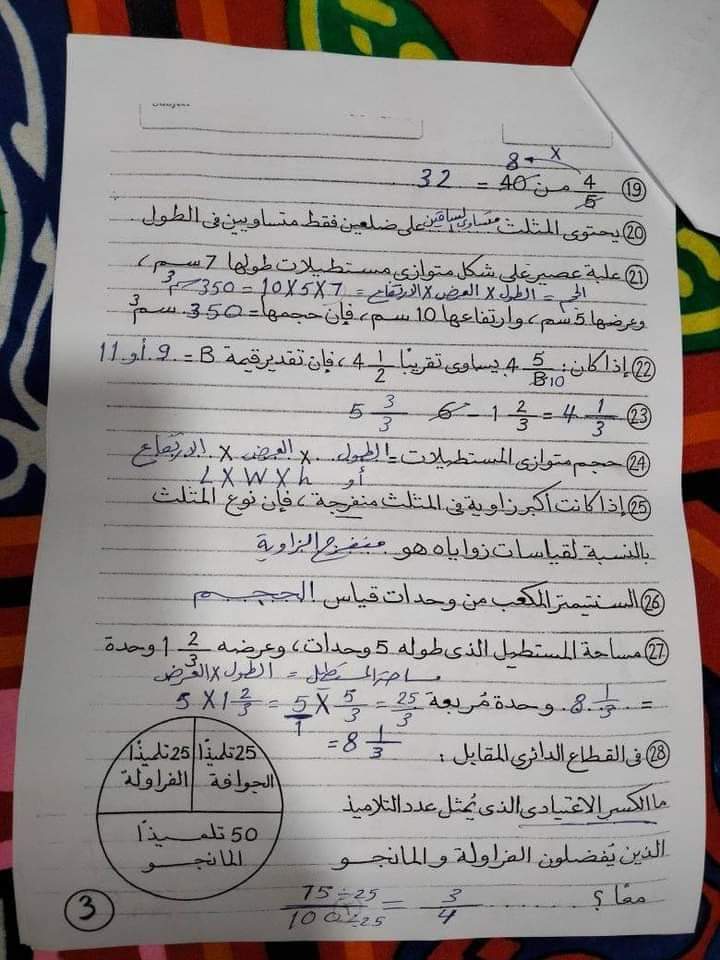 Subject
8 ← x
⑲ 4/5 من 40 = 32
⑳ يحتوى المثلث متساوى الساقين على ضلعين فقط متساويين فى الطول
㉑ علبة عصير على شكل متوازى مستطيلات طولها 7 سم ،
الحجم = الطول x العرض x الارتفاع = 7 x 5 x 10 = 350 سم³
وعرضها 5 سم ، وارتفاعها 10 سم ، فإن حجمها = 350 سم³
㉒ إذا كان : 4 5/B يساوى تقريبًا 4 1/2 ، فإن تقدير قيمة B = 9 أو 11
10
㉓ 4 1/3 = 6 - 1 2/3 5 3/3
㉔ حجم متوازى المستطيلات = الطول x العرض x الارتفاع
أو L x W x h
㉕ إذا كانت أكبر زاوية فى المثلث منفرجة ، فإن نوع المثلث
بالنسبة لقياسات زواياه هو منفرج الزاوية
㉖ السنتيمتر المكعب من وحدات قياس الحجم
㉗ مساحة المستطيل الذى طوله 5 وحدات ، وعرضه 1 2/3 وحدة
مساحة المستطيل = الطول x العرض
= 8 1/3 وحدة مُربعة 5 x 1 2/3 = 5/1 x 5/3 = 25/3
= 8 1/3
㉘ فى القطاع الدائرى المقابل :
ما الكسر الاعتيادى الذى يُمثل عدد التلاميذ
الذين يُفضلون الفراولة و المانجو
معًا ؟ 75÷25/100÷25 = 3/4
25 تلميذًا
الجوافة
25 تلميذًا
الفراولة
50 تلميذًا
المانجو
3